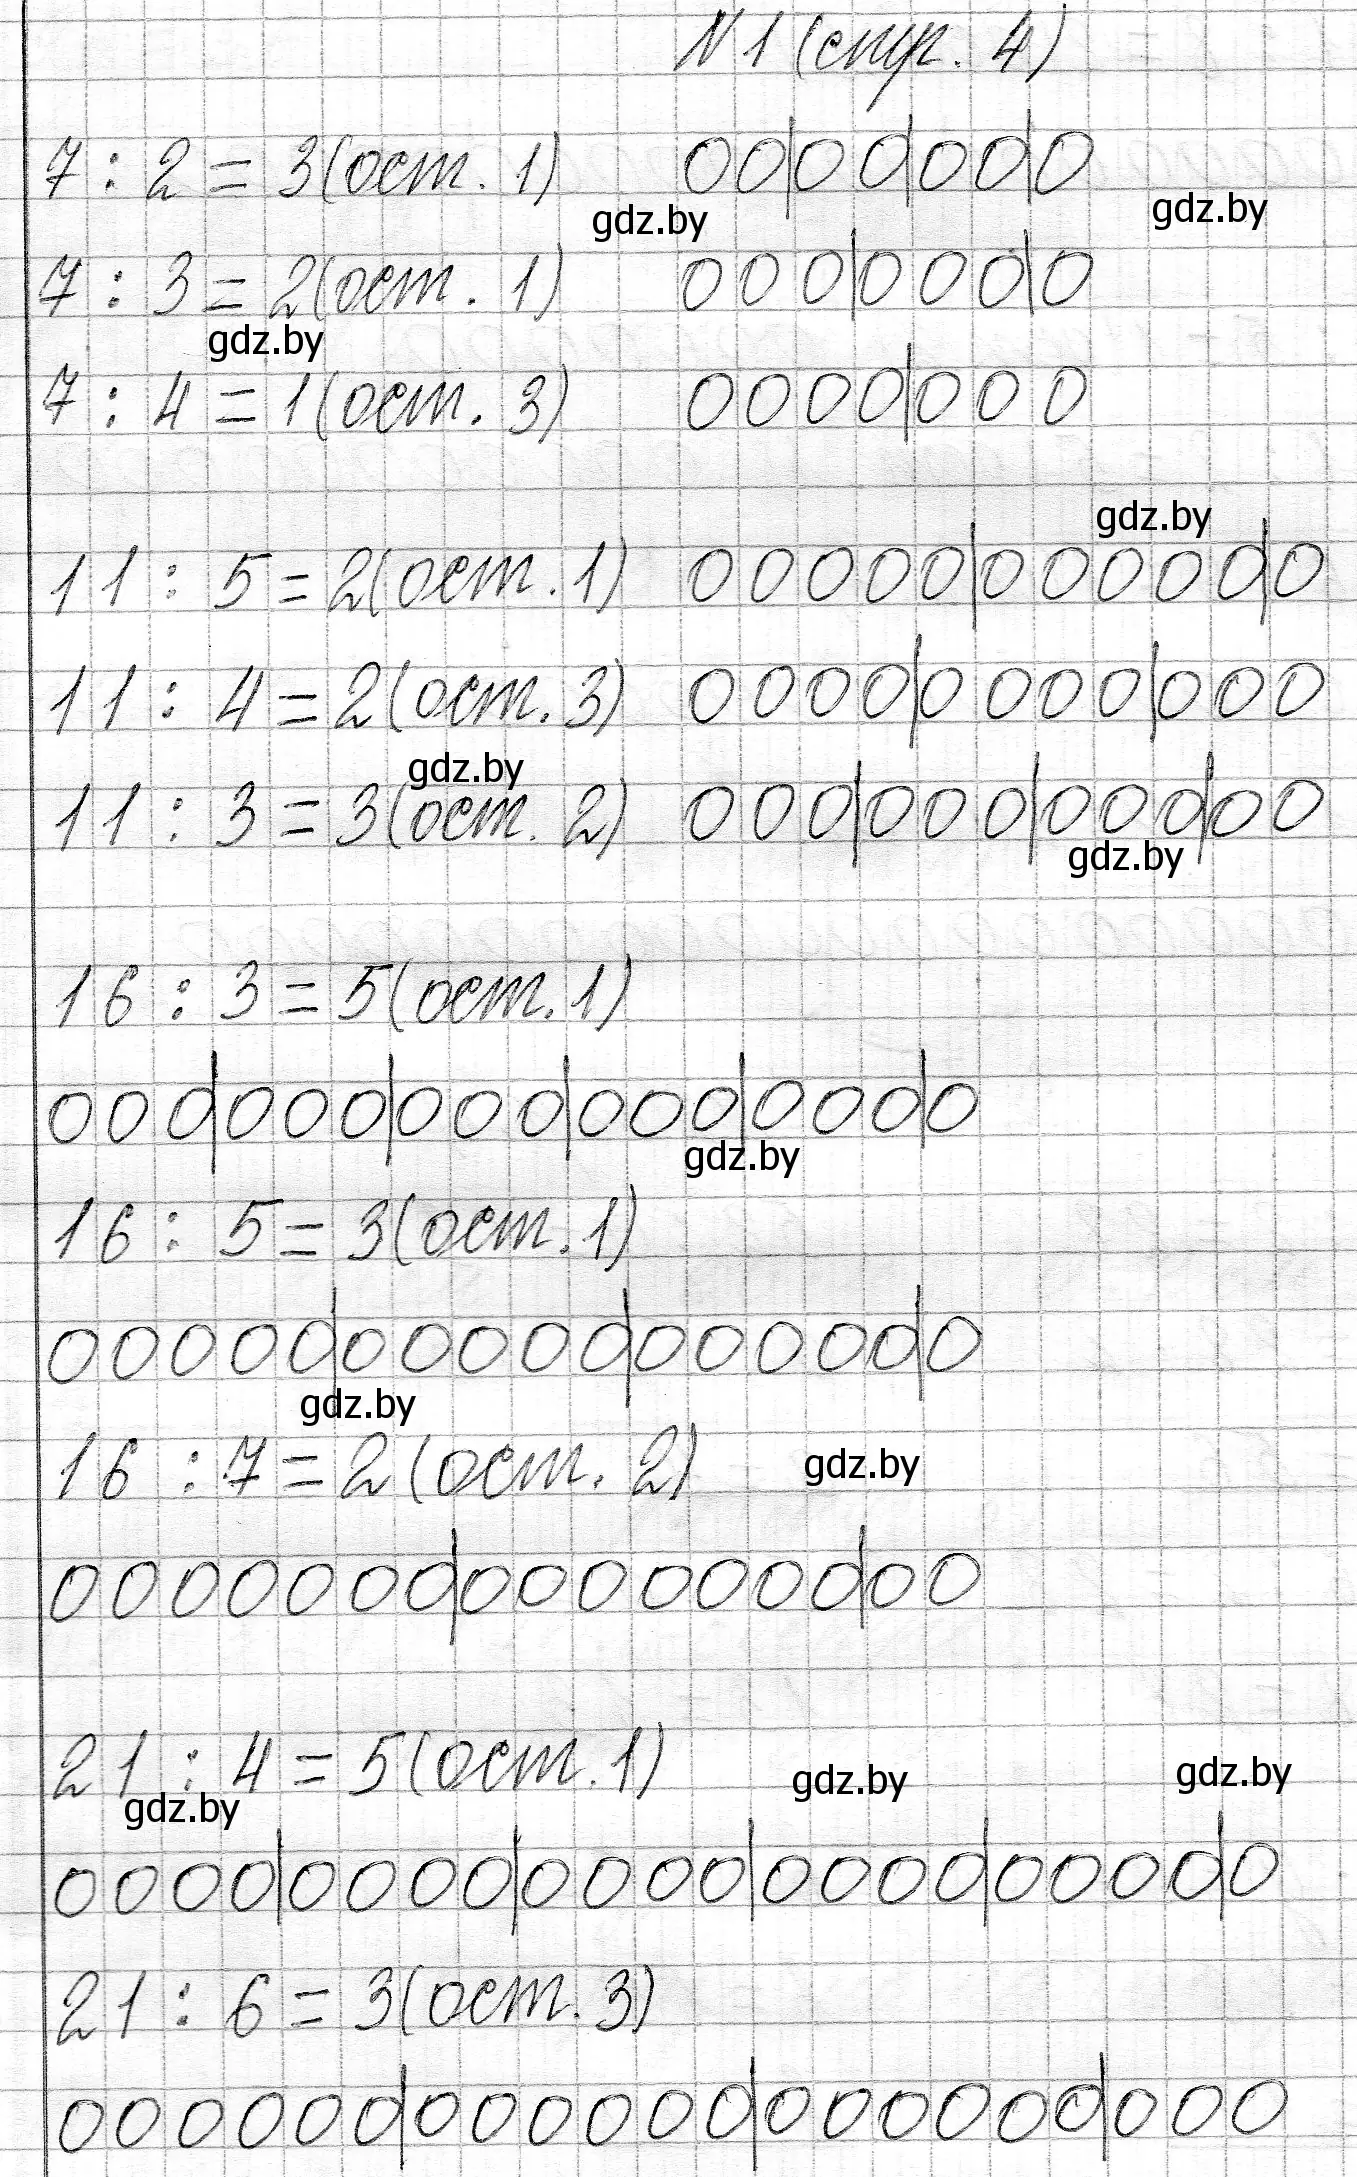 N 1 (стр. 4)
7 : 2 = 3 (ост. 1) 00|00|00|0
gdz.by gdz.by
7 : 3 = 2 (ост. 1) 000|000|0
gdz.by
7 : 4 = 1 (ост. 3) 0000|000
gdz.by
11 : 5 = 2 (ост. 1) 00000|00000|0
11 : 4 = 2 (ост. 3) 0000|0000|000
gdz.by
11 : 3 = 3 (ост. 2) 000|000|000|00
gdz.by
16 : 3 = 5 (ост. 1)
000|000|000|000|000|0
gdz.by
16 : 5 = 3 (ост. 1)
00000|00000|00000|0
gdz.by
16 : 7 = 2 (ост. 2)
gdz.by
0000000|0000000|00
21 : 4 = 5 (ост. 1)
gdz.by gdz.by gdz.by
0000|0000|0000|0000|0000|0
21 : 6 = 3 (ост. 3)
000000|000000|000000|000